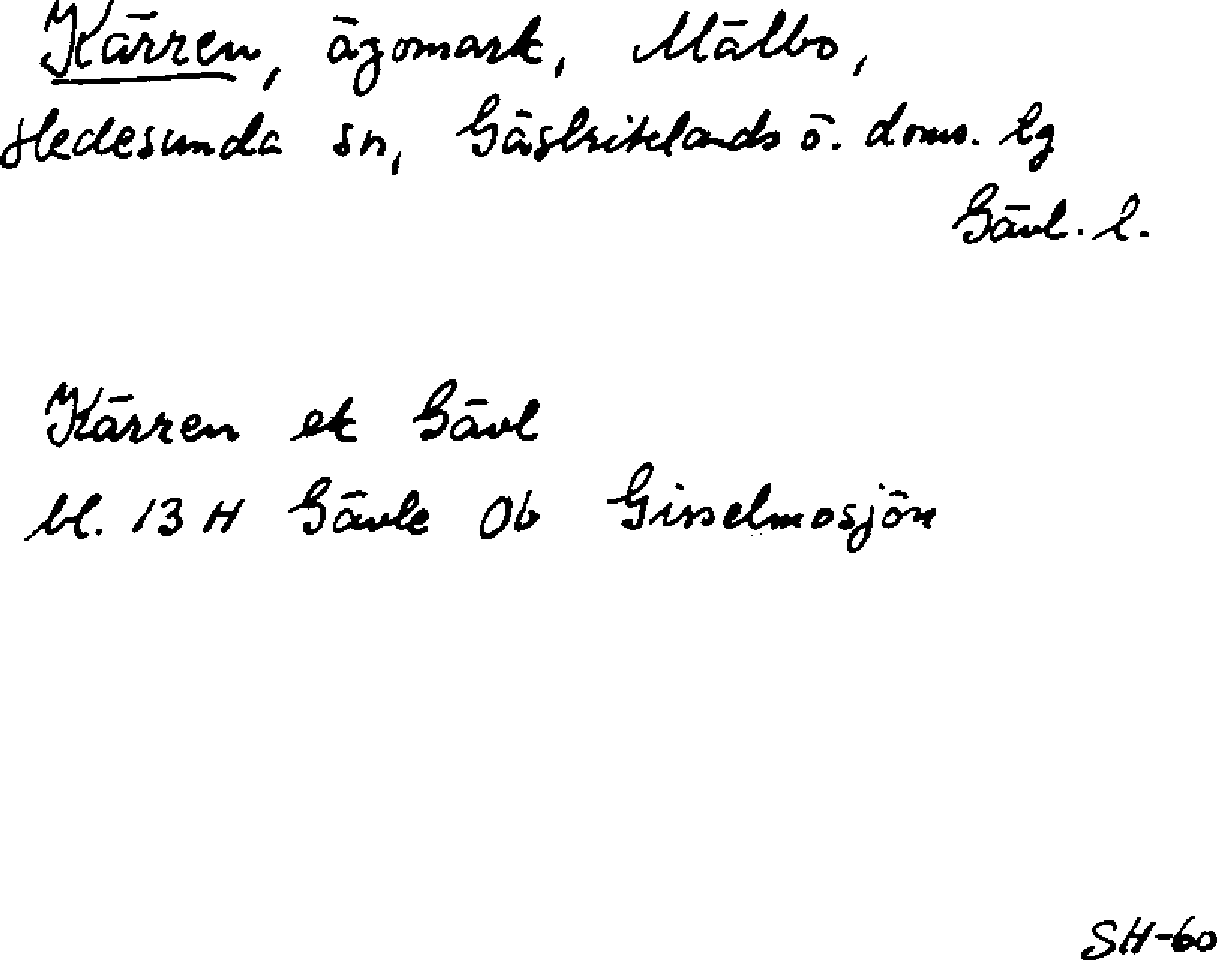 Kärren, ägomark, Mälbo,
Hedesunda sn, Gästriklands ö. doms. lg
Gävl. l.
Kärren ek Gävl
bl. 13 H Gävle 0b Gisselmosjön
SH-60